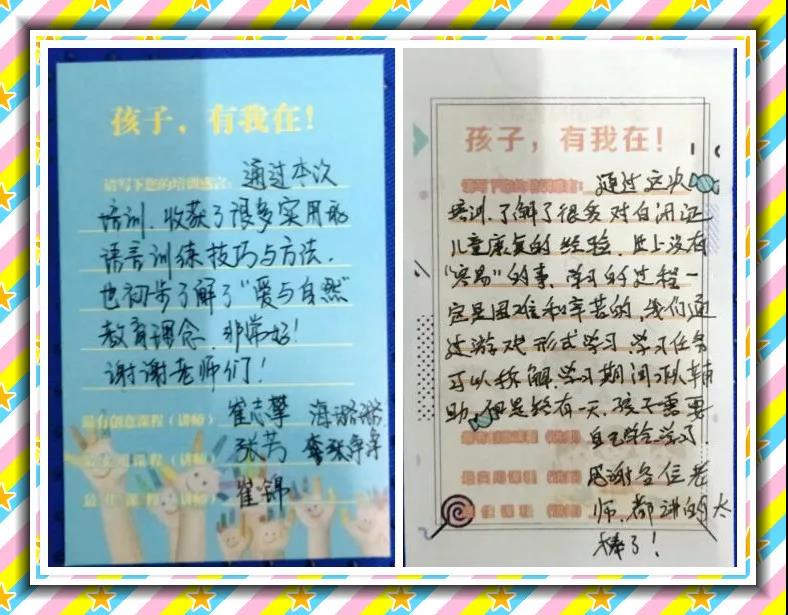 孩子，有我在！
请写下您的培训感言：通过本次
培训，收获了很多实用的
语言训练技巧与方法.
也初步了解了“爱与自然”
教育理念，非常好！
谢谢老师们！
最有创意课程（讲师） 崔志擎
课程（讲师） 张芳
最佳课程（讲师） 崔锦
孩子，有我在！
通过这次
培训，了解了很多对自闭症
儿童康复的经验，世上没有
“容易”的事，学习的过程一
定是困难和辛苦的，我们通
过游戏形式学习，学习任务
可以拆解，学习期间可以辅
助，但是终有一天，孩子需要
自己学会学习.
最实用课程
感谢各位老
佳课程
师，都讲的太
棒了！